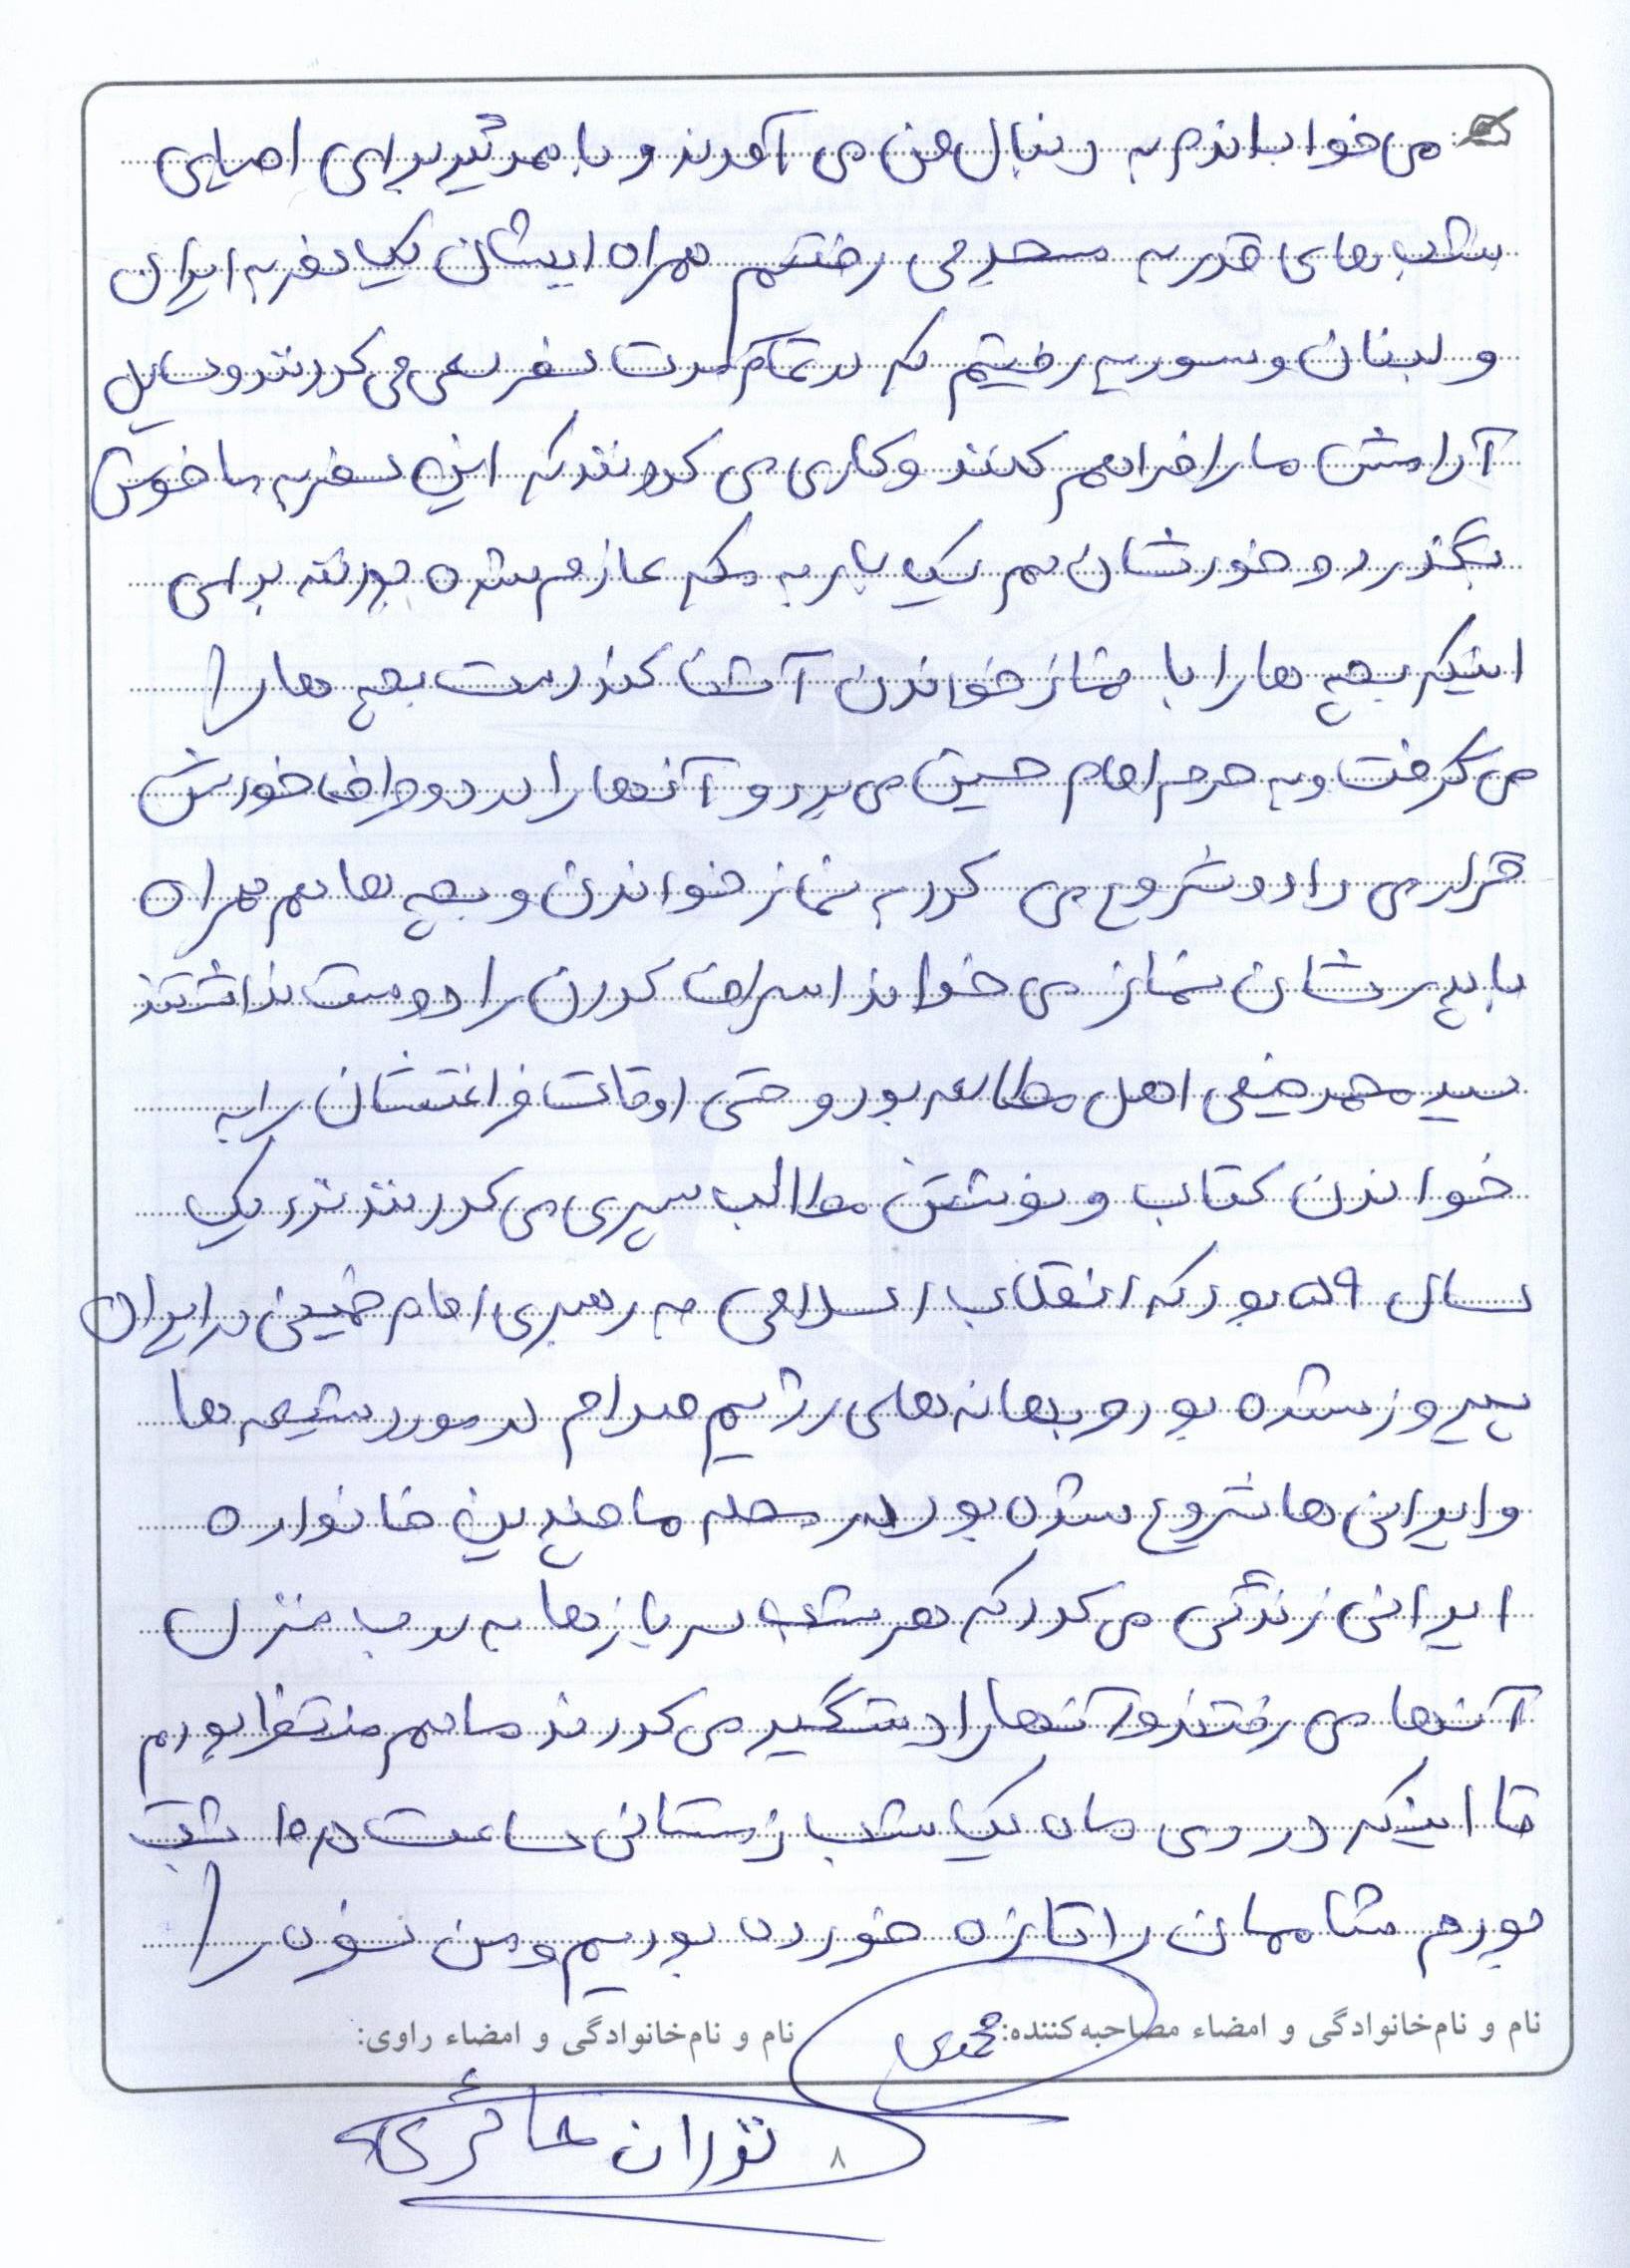 می خواباندم به دنبال من می آمدند و با همدیگر برای احیای
شب های قدر به مسجد می رفتیم همراه ایشان یک سفر به ایران
و لبنان و سوریه رفتیم که در تمام مدت سفر سعی می کردند وسایل
آرامش ما را فراهم کنند و کاری می کردند که این سفر به ما خوش
بگذرد و خودشان هم یک بار به مکه عازم شده بودند برای
اینکه بچه ها را با نماز خواندن آشنا کند دست بچه ها را
می گرفت و به حرم امام حسین می برد و آنها را در دو طرف خودش
قرار می داد و شروع می کرد به نماز خواندن و بچه ها هم همراه
با پدرشان نماز می خواند اسراف کردن را دوست نداشتند
سید محمد حنفی اهل مطالعه بود و حتی اوقات فراغتشان را به
خواندن کتاب و نوشتن مطالب سپری می کردند نزدیک
سال ۵۹ بود که انقلاب اسلامی به رهبری امام خمینی در ایران
پیروز شده بود و بهانه های رژیم صدام در مورد شیعه ها
و ایرانی ها شروع شده بود در محله ما چندین خانواده
ایرانی زندگی می کرد که هر شب سربازها به درب منزل
آنها می رفتند و آنها را دستگیر می کردند ما هم منتظر بودیم
تا اینکه در دی ماه یک شب زمستانی ساعت ۱۰ شب
بودم شاممان را تازه خورده بودیم و من نوه را
نام و نام‌خانوادگی و امضاء مصاحبه‌کننده: محمدی
نام و نام‌خانوادگی و امضاء راوی:
توران حائری
۸